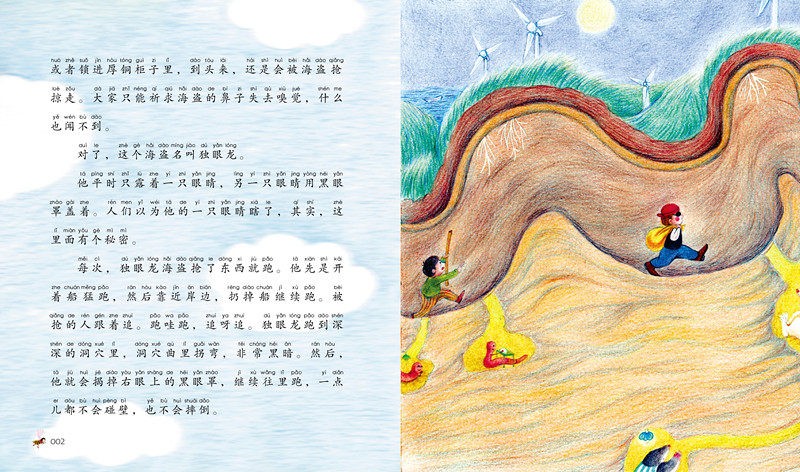 huò zhě suǒ jìn hòu tóng guì zi lǐ dào tóu lái hái shì huì bèi hǎi dào qiǎng
或者锁进厚铜柜子里，到头来，还是会被海盗抢
lüè zǒu dà jiā zhǐ néng qí qiú hǎi dào de bí zi shī qù xiù jué shén me
掠走。大家只能祈求海盗的鼻子失去嗅觉，什么
yě wén bú dào
也闻不到。
duì le zhè gè hǎi dào míng jiào dú yǎn lóng
对了，这个海盗名叫独眼龙。
tā píng shí zhǐ lòu zhe yì zhī yǎn jīng lìng yì zhī yǎn jīng yòng hēi yǎn
他平时只露着一只眼睛，另一只眼睛用黑眼
zhào gài zhe rén men yǐ wéi tā de yì zhī yǎn jīng xiā le qí shí zhè
罩盖着。人们以为他的一只眼睛瞎了，其实，这
lǐ miàn yǒu gè mì mì
里面有个秘密。
měi cì dú yǎn lóng hǎi dào qiǎng le dōng xi jiù pǎo tā xiān shì kāi
每次，独眼龙海盗抢了东西就跑。他先是开
zhe chuán měng pǎo rán hòu kào jìn àn biān rēng diào chuán jì xù pǎo bèi
着船猛跑，然后靠近岸边，扔掉船继续跑。被
qiǎng de rén gēn zhe zhuī pǎo wa pǎo zhuī ya zhuī dú yǎn lóng pǎo dào shēn
抢的人跟着追。跑哇跑，追呀追。独眼龙跑到深
shēn de dòng xué lǐ dòng xué qū lǐ guǎi wān fēi cháng hēi àn rán hòu
深的洞穴里，洞穴曲里拐弯，非常黑暗。然后，
tā jiù huì jiē diào yòu yǎn shàng de hēi yǎn zhào jì xù wǎng lǐ pǎo yì diǎn
他就会揭掉右眼上的黑眼罩，继续往里跑，一点
ér dōu bú huì pèng bì yě bú huì shuāi dǎo
儿都不会碰壁，也不会摔倒。
002